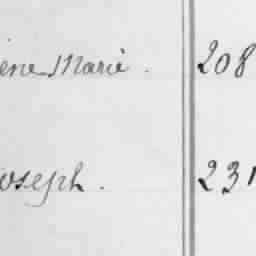 ène Marie. 208
Joseph. 231